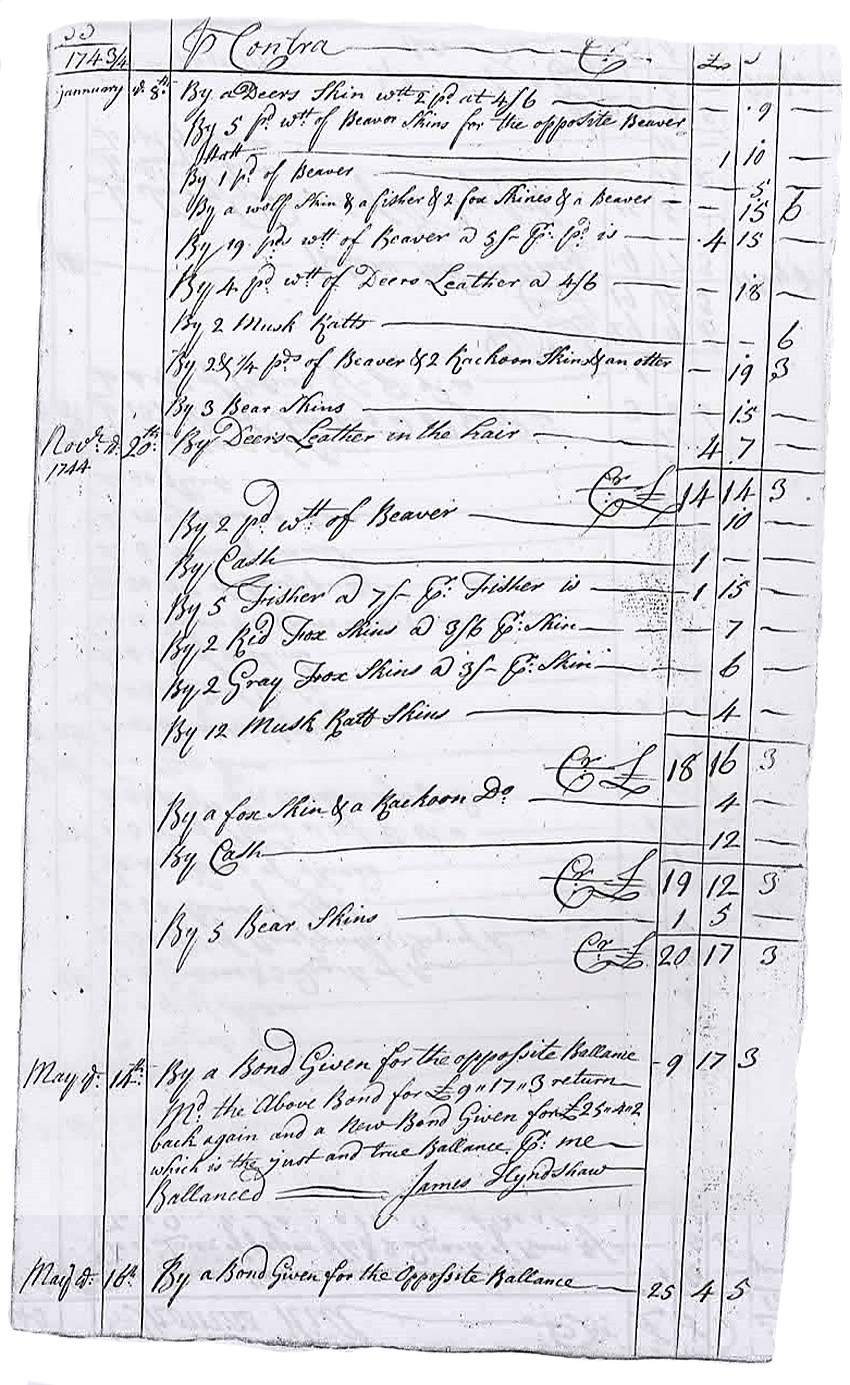 33
1743/4 P Contra Cr £ s
January d. 8th By a Deers Skin wtt 2 pd at 4/6 — 9 —
By 5 pd wtt of Beavor Skins for the opposite Beaver
Hatt — 1 10 —
By 1 pd of Beaver — 5 —
By a wolf Skin & a fisher & 2 fox Skines & a Beaver — 15 6
By 19 pds wtt of Beaver a 5/- Pr. pd is — 4 15 —
By 4 pd wtt of Deers Leather a 4/6 — 18 —
By 2 Musk Ratts — 6
By 2 & 3/4 pds of Beaver & 2 Rackoon Skins & an otter — 19 3
By 3 Bear Skins — 15 —
Novbr d. 20th By Deers Leather in the hair — 4 7 —
1744
Cr £ 14 14 3
By 2 pd wtt of Beaver — 10 —
By Cash — 1 — —
By 5 Fisher a 7/- Pr. Fisher is — 1 15 —
By 2 Rid Fox Skins a 3/6 Pr. Skin — 7 —
By 2 Gray Fox Skins a 3/- Pr. Skin — 6 —
By 12 Musk Ratt Skins — 4 —
Cr £ 18 16 3
By a fox Skin & a Rackoon Do — 4 —
By Cash — 12 —
Cr £ 19 12 3
By 5 Bear Skins — 1 5 —
Cr £ 20 17 3
May d. 14th By a Bond Given for the opposite Ballance — 9 17 3
Md. the Above Bond for £9"17"3 return
back again and a New Bond Given for £25"4"2
which is the just and true Ballance Pr. me
Ballanced — James Hyndshaw
May d. 16th By a Bond Given for the Opposite Ballance — 25 4 5